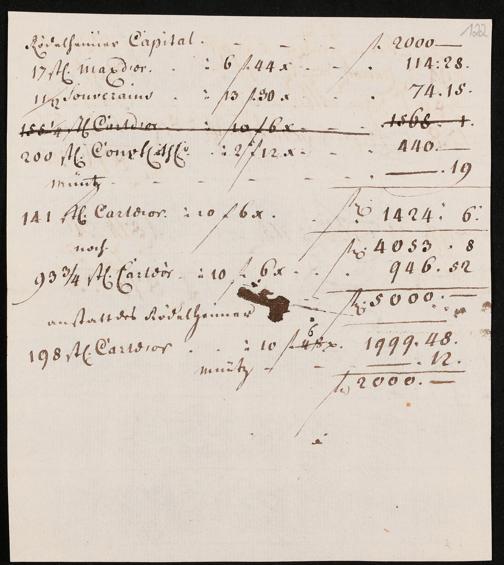 122
Rödelheimer Capital. - - - f. 2000 —
17 st. Maxdor. - : 6 f. 44 x - . 114:28.
Souverains : 13 f. 30 x . 74.15.
155 1/4 st. Carldor 10 f 6 x 1568. 1.
200 st. : 2 f 12 x - . 440. —
müntz - - - - . — . 19
141 st. Carldor. : 10 f 6 x. . f. 1424: 6.
noch f. 4053 . 8
93 3/4 st. Carldor : 10 f. 6 x - . 946. 52
f. 5000. —
anstatt des Rödelheimer
6
198 st. Carldor . : 10 f. 48 x. 1999.48.
müntz — . 12.
f. 2000. —